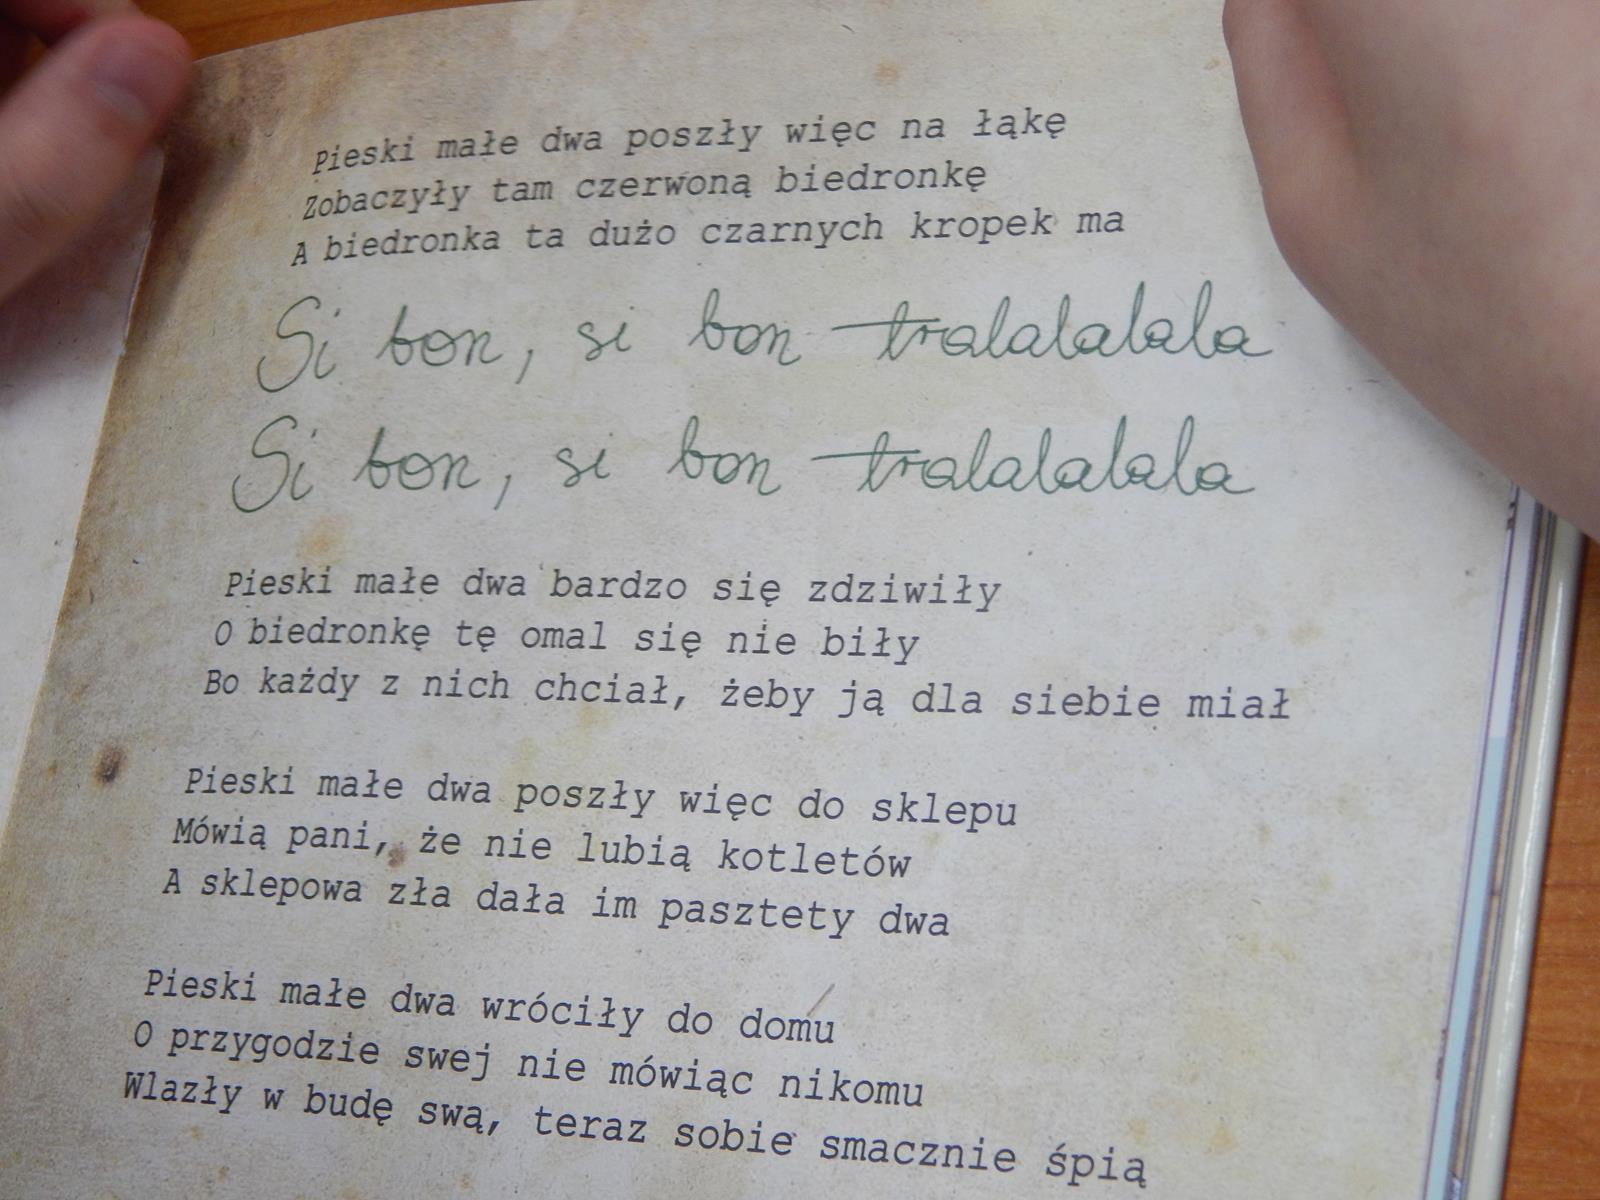 Pieski małe dwa poszły więc na łąkę
Zobaczyły tam czerwoną biedronkę
A biedronka ta dużo czarnych kropek ma
Si bon, si bon tralalalala
Si bon, si bon tralalalala
Pieski małe dwa bardzo się zdziwiły
O biedronkę tę omal się nie biły
Bo każdy z nich chciał, żeby ją dla siebie miał
Pieski małe dwa poszły więc do sklepu
Mówią pani, że nie lubią kotletów
A sklepowa zła dała im pasztety dwa
Pieski małe dwa wróciły do domu
O przygodzie swej nie mówiąc nikomu
Wlazły w budę swą, teraz sobie smacznie śpią